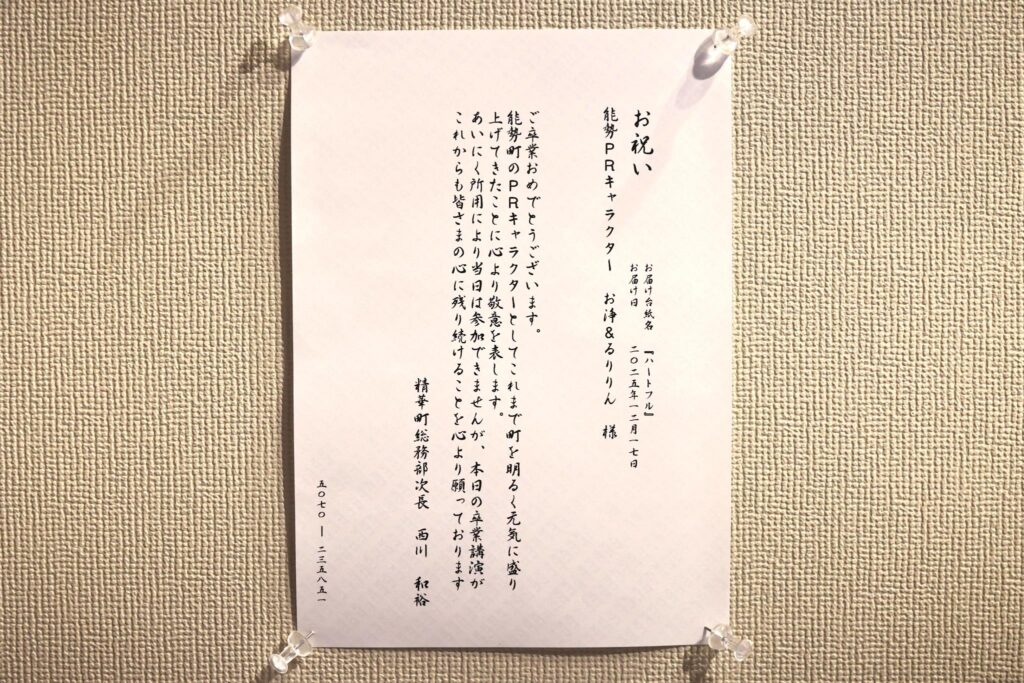 お祝い
お届け台紙名 『ハートフル』
お届け日 二〇二五年一二月一七日
能勢PRキャラクター お浄&るりりん 様
ご卒業おめでとうございます。
能勢町のPRキャラクターとしてこれまで町を明るく元気に盛り
上げてきたことに心より敬意を表します。
あいにく所用により当日は参加できませんが、本日の卒業講演が
これからも皆さまの心に残り続けることを心より願っております
精華町総務部次長 西川 和裕
五〇七〇 ― 二三五八五一